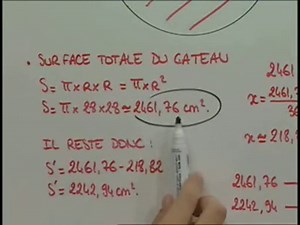 • SURFACE TOTALE DU GATEAU
S = π x R x R = π x R²
S = π x 28 x 28 ≃ 2461,76 cm².
IL RESTE DONC :
S' = 2461,76 - 218,82
S' = 2242,94 cm².
2461
x = 2461,
36
x ≃ 218,
2461,76 —
2242,94 —